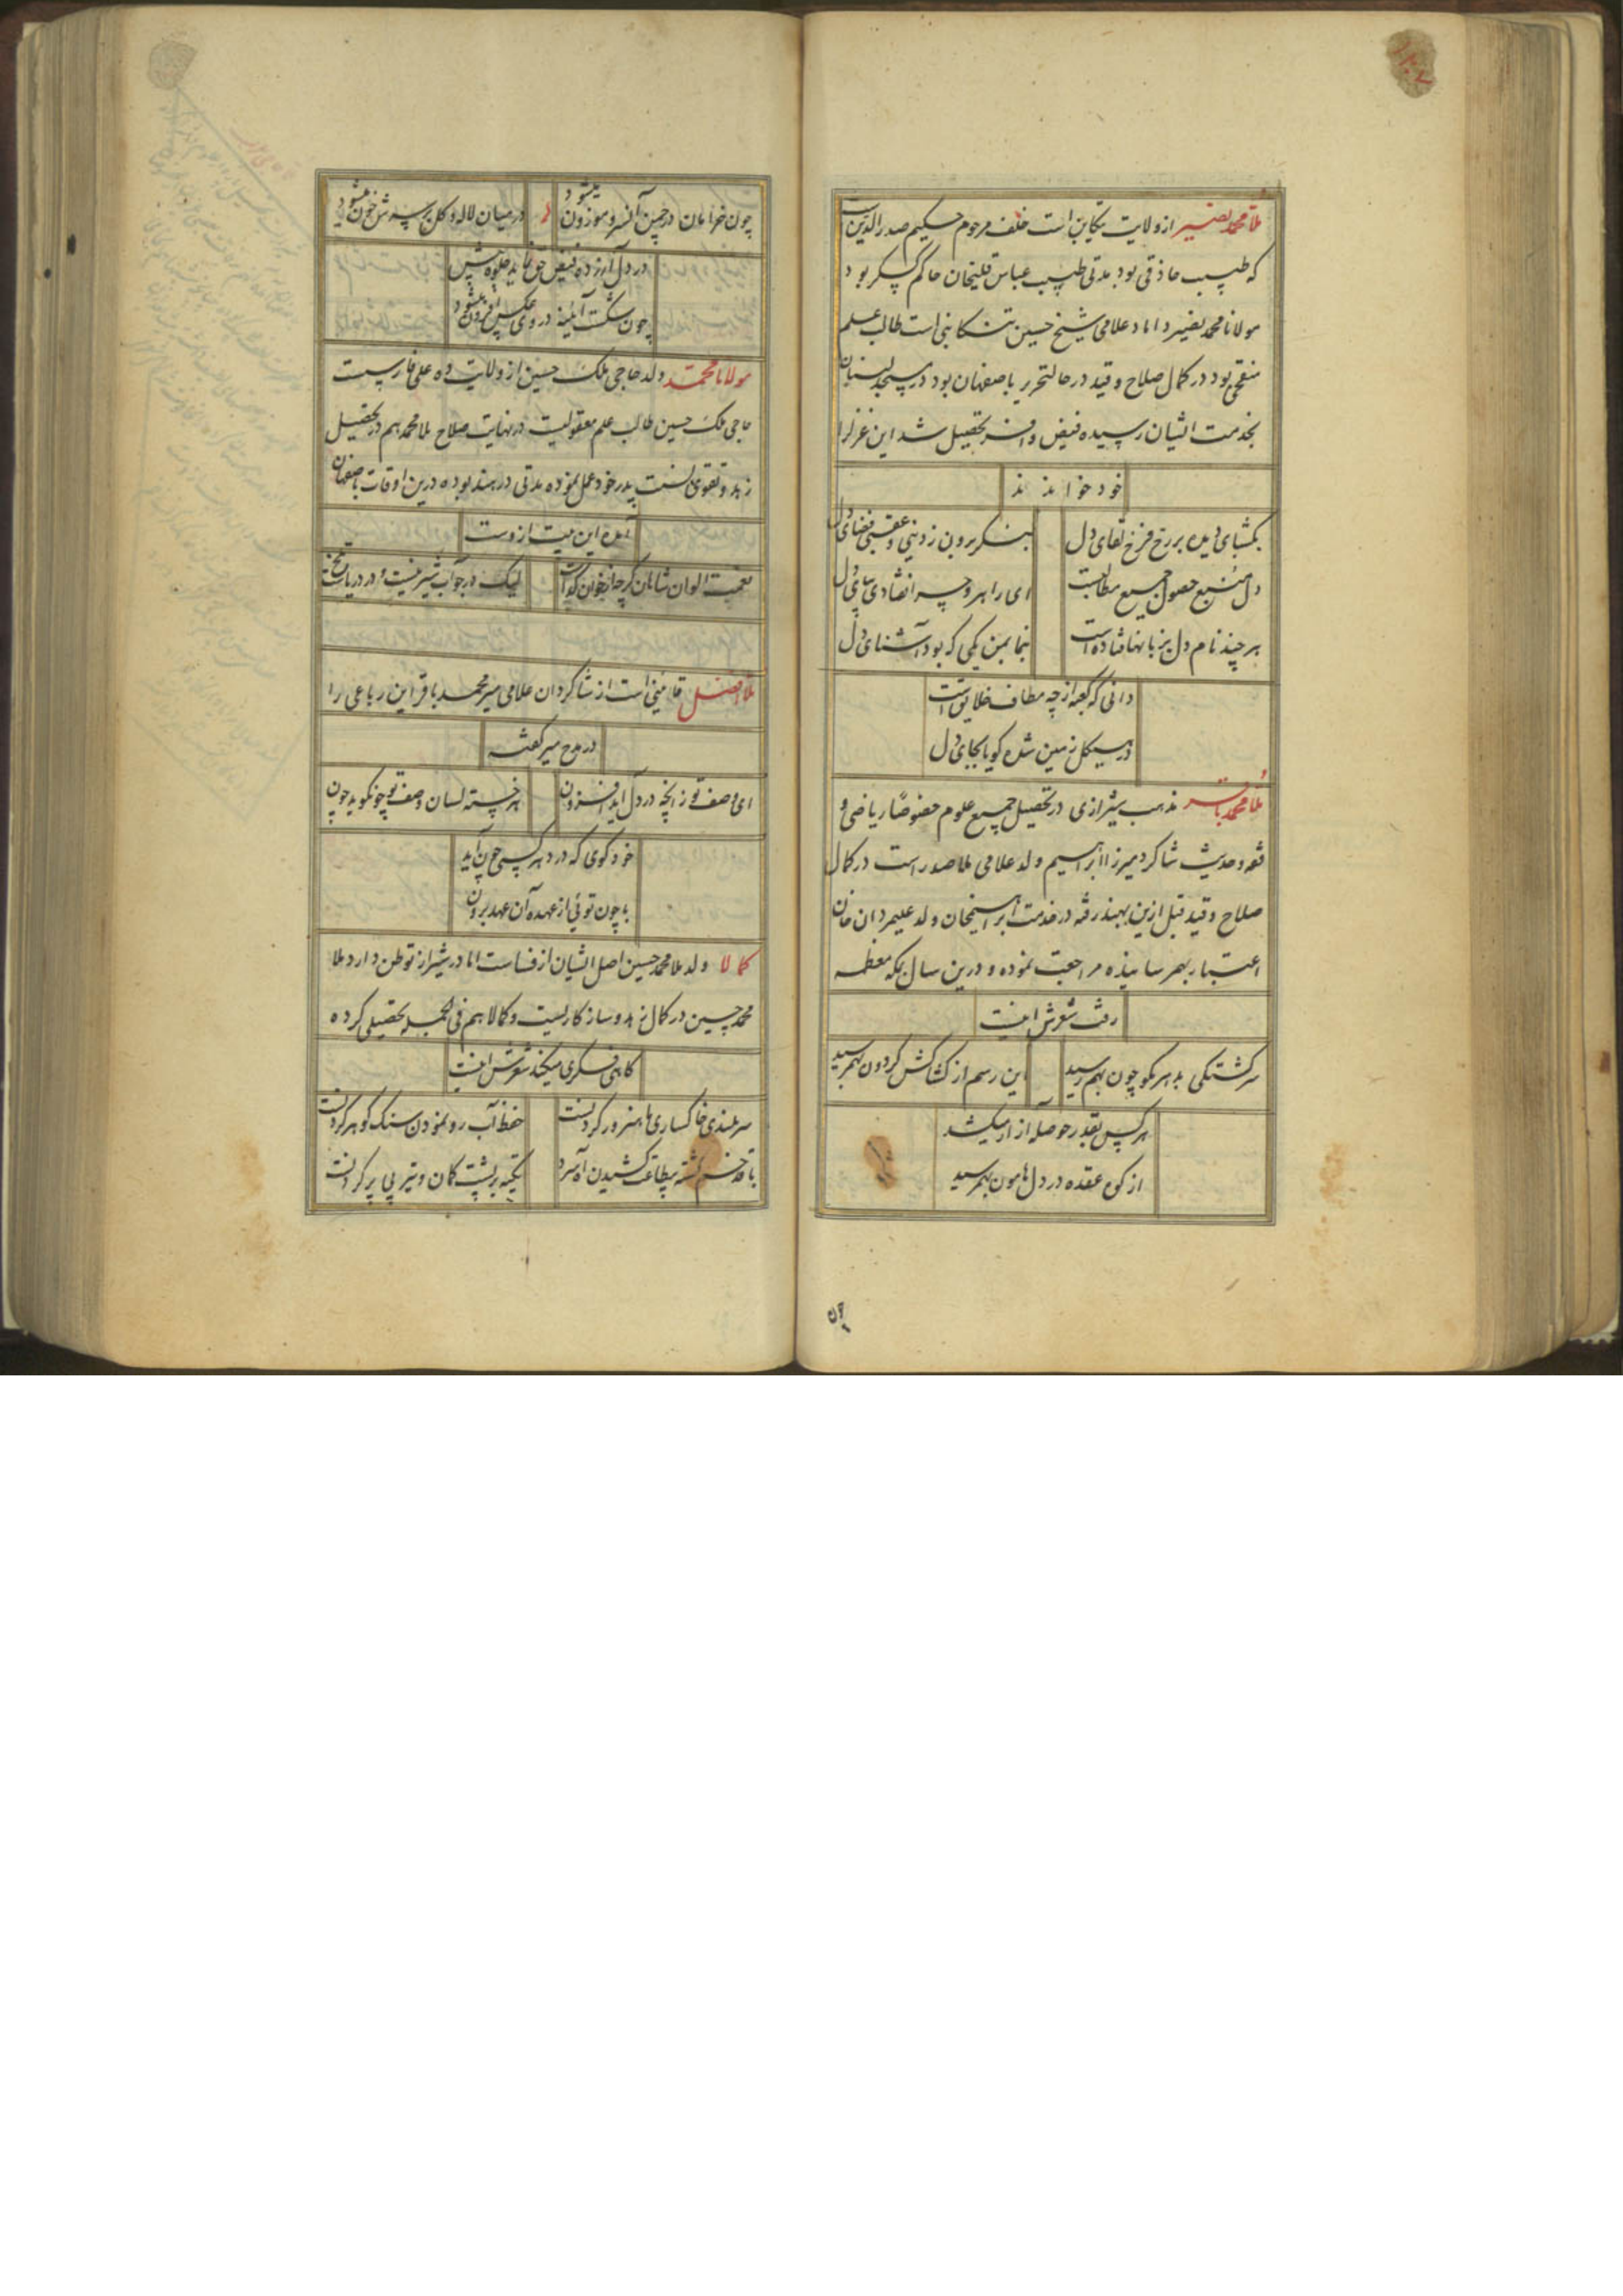 ملا محمد نصیر از ولایت تنکابن است خلف مرحوم حکیم صدرالدین است
که طبیب حاذقی بود مدتی طبیب عباس قلیخان حاکم کسکر بود
مولانا محمد نصیر داماد علامی شیخ حسین تنکابنی است طالب علم
منقحی بود در کمال صلاح و قید در حالتحریر باصفهان بود در مسجد لنبان
بخدمت ایشان رسیده فیض وافر تحصیل شد این غزل را
خود خواندند
بکشای دیده بر رخ فرخ لقای دل
بنکر برون ز دنیی و عقبی فضای دل
دل منبع حصول جمیع مطالبست
ای راهرو چرا نفتادی بپای دل
هر چند نام دل بزبانها فتاده است
بنما بمن یکی که بود آشنای دل
دانی که کعبه از چه مطاف خلایق است
در هیکل زمین شده کویا بجای دل
ملا محمد باقر مذهب شیرازی در تحصیل جمیع علوم خصوصًا ریاضی و
فقه و حدیث شاکرد میرزا ابراهیم ولد علامی ملا صدراست در کمال
صلاح و قید قبل ازین بهند رفته در خدمت ابراهیمخان ولد علیمردان خان
اعتبار بهمرسانیده مراجعت نموده و درین سال بمکه معظمه
رفت شعرش اینست
سرکشتکی بدهر مکو چون بهم رسید
این رسم از کشاکش کردون بهمرسید
هر کس بقدر حوصله آزار میکشد
از کوه عقده در دل هامون بهمرسید
چون خرامان در چمن آن سرو موزون میشود
در میان لاله و کل بر سرش خون میشود
در دل آزرده فیض حق نماید جلوه بیش
چون شکست آئینه در وی عکس افزون میشود
مولانا محمد ولد حاجی ملک حسین از ولایت ده علی فارسست
حاجی ملک حسین طالب علم معقولیست در نهایت صلاح ملا محمد هم در تحصیل
زهد و تقوی بسنت پدر خود عمل نموده مدتی در هند بوده درین اوقات باصفهان
آمده این بیت ازوست
نعمت الوان شاهان کرچه از خون کداست
لیک در جو آب شیرینست و در دریا تلخست
ملا افضل قاینی است از شاکردان علامی میر محمد باقر این رباعی را
در مدح میر کفته
ای وصف تو ز آنچه در دل آید افزون
هر خسته لسان وصف تو چو نکوید چون
خود کوی که در دهر کسی چون آید
با چون توئی از عهده آن عهد برون
کمالا ولد ملا محمد حسین اصل ایشان از فساست اما در شیراز توطن دارد ملا
محمد حسین در کمال زهد و سازکاریست و کمالا هم فی الجمله تحصیلی کرده
کاهی فکری میکند شعرش اینست
سر بلندی خاکساری را هنرور کردنست
حفظ آب رو نمودن سنک کوهر کردنست
با قد خم کشته بیطاقت کشیدن آه سرد
تکیه بر پشت کمان و تیر بی پر کردنست